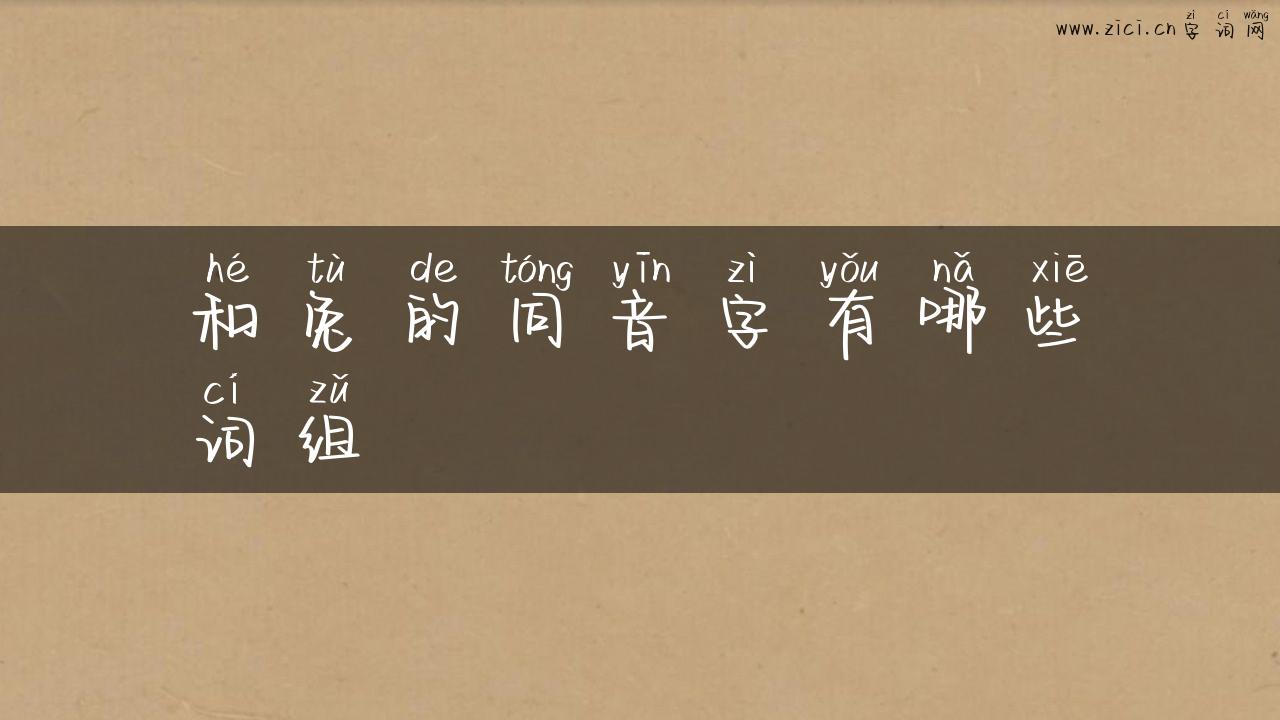 zì cí wǎng
www.zici.cn 字词网
hé tù de tóng yīn zì yǒu nǎ xiē
和兔的同音字有哪些
cí zǔ
词组